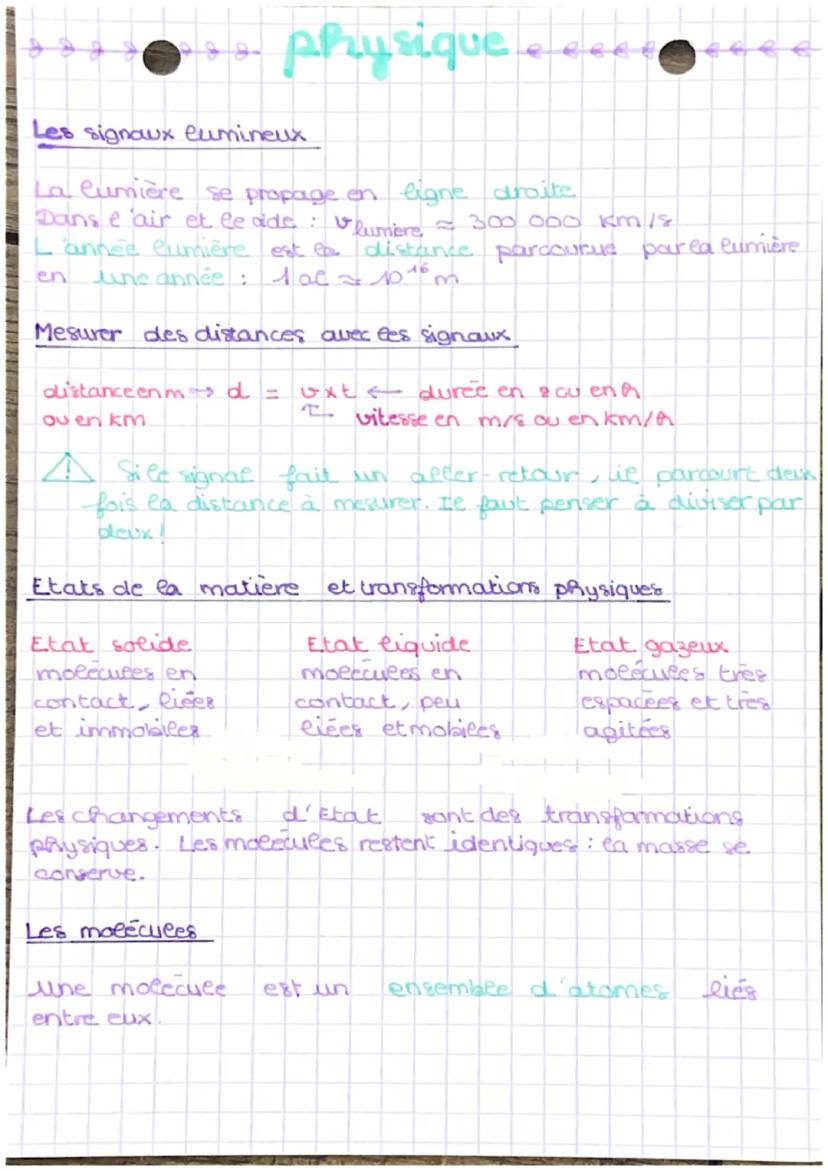 physique
Les signaux lumineux
La lumière se propage en ligne droite
Dans l'air et le vide : v lumière ≈ 300 000 km/s
L'année lumière est la distance parcourue par la lumière
en une année : 1 al ≈ 10¹⁶ m
Mesurer des distances avec les signaux
distance en m → d = v x t ← durée en s ou en h
ou en km vitesse en m/s ou en km/h
⚠ Si le signal fait un aller-retour, il parcourt deux
fois la distance à mesurer. Il faut penser à diviser par
deux!
Etats de la matière et transformations physiques
Etat solide Etat liquide Etat gazeux
molécules en molécules en molécules très
contact, liées contact, peu espacées et très
et immobiles liées et mobiles agitées
Les changements d'Etat sont des transformations
physiques. Les molécules restent identiques : la masse se
conserve.
Les molécules
une molécule est un ensemble d'atomes liés
entre eux.